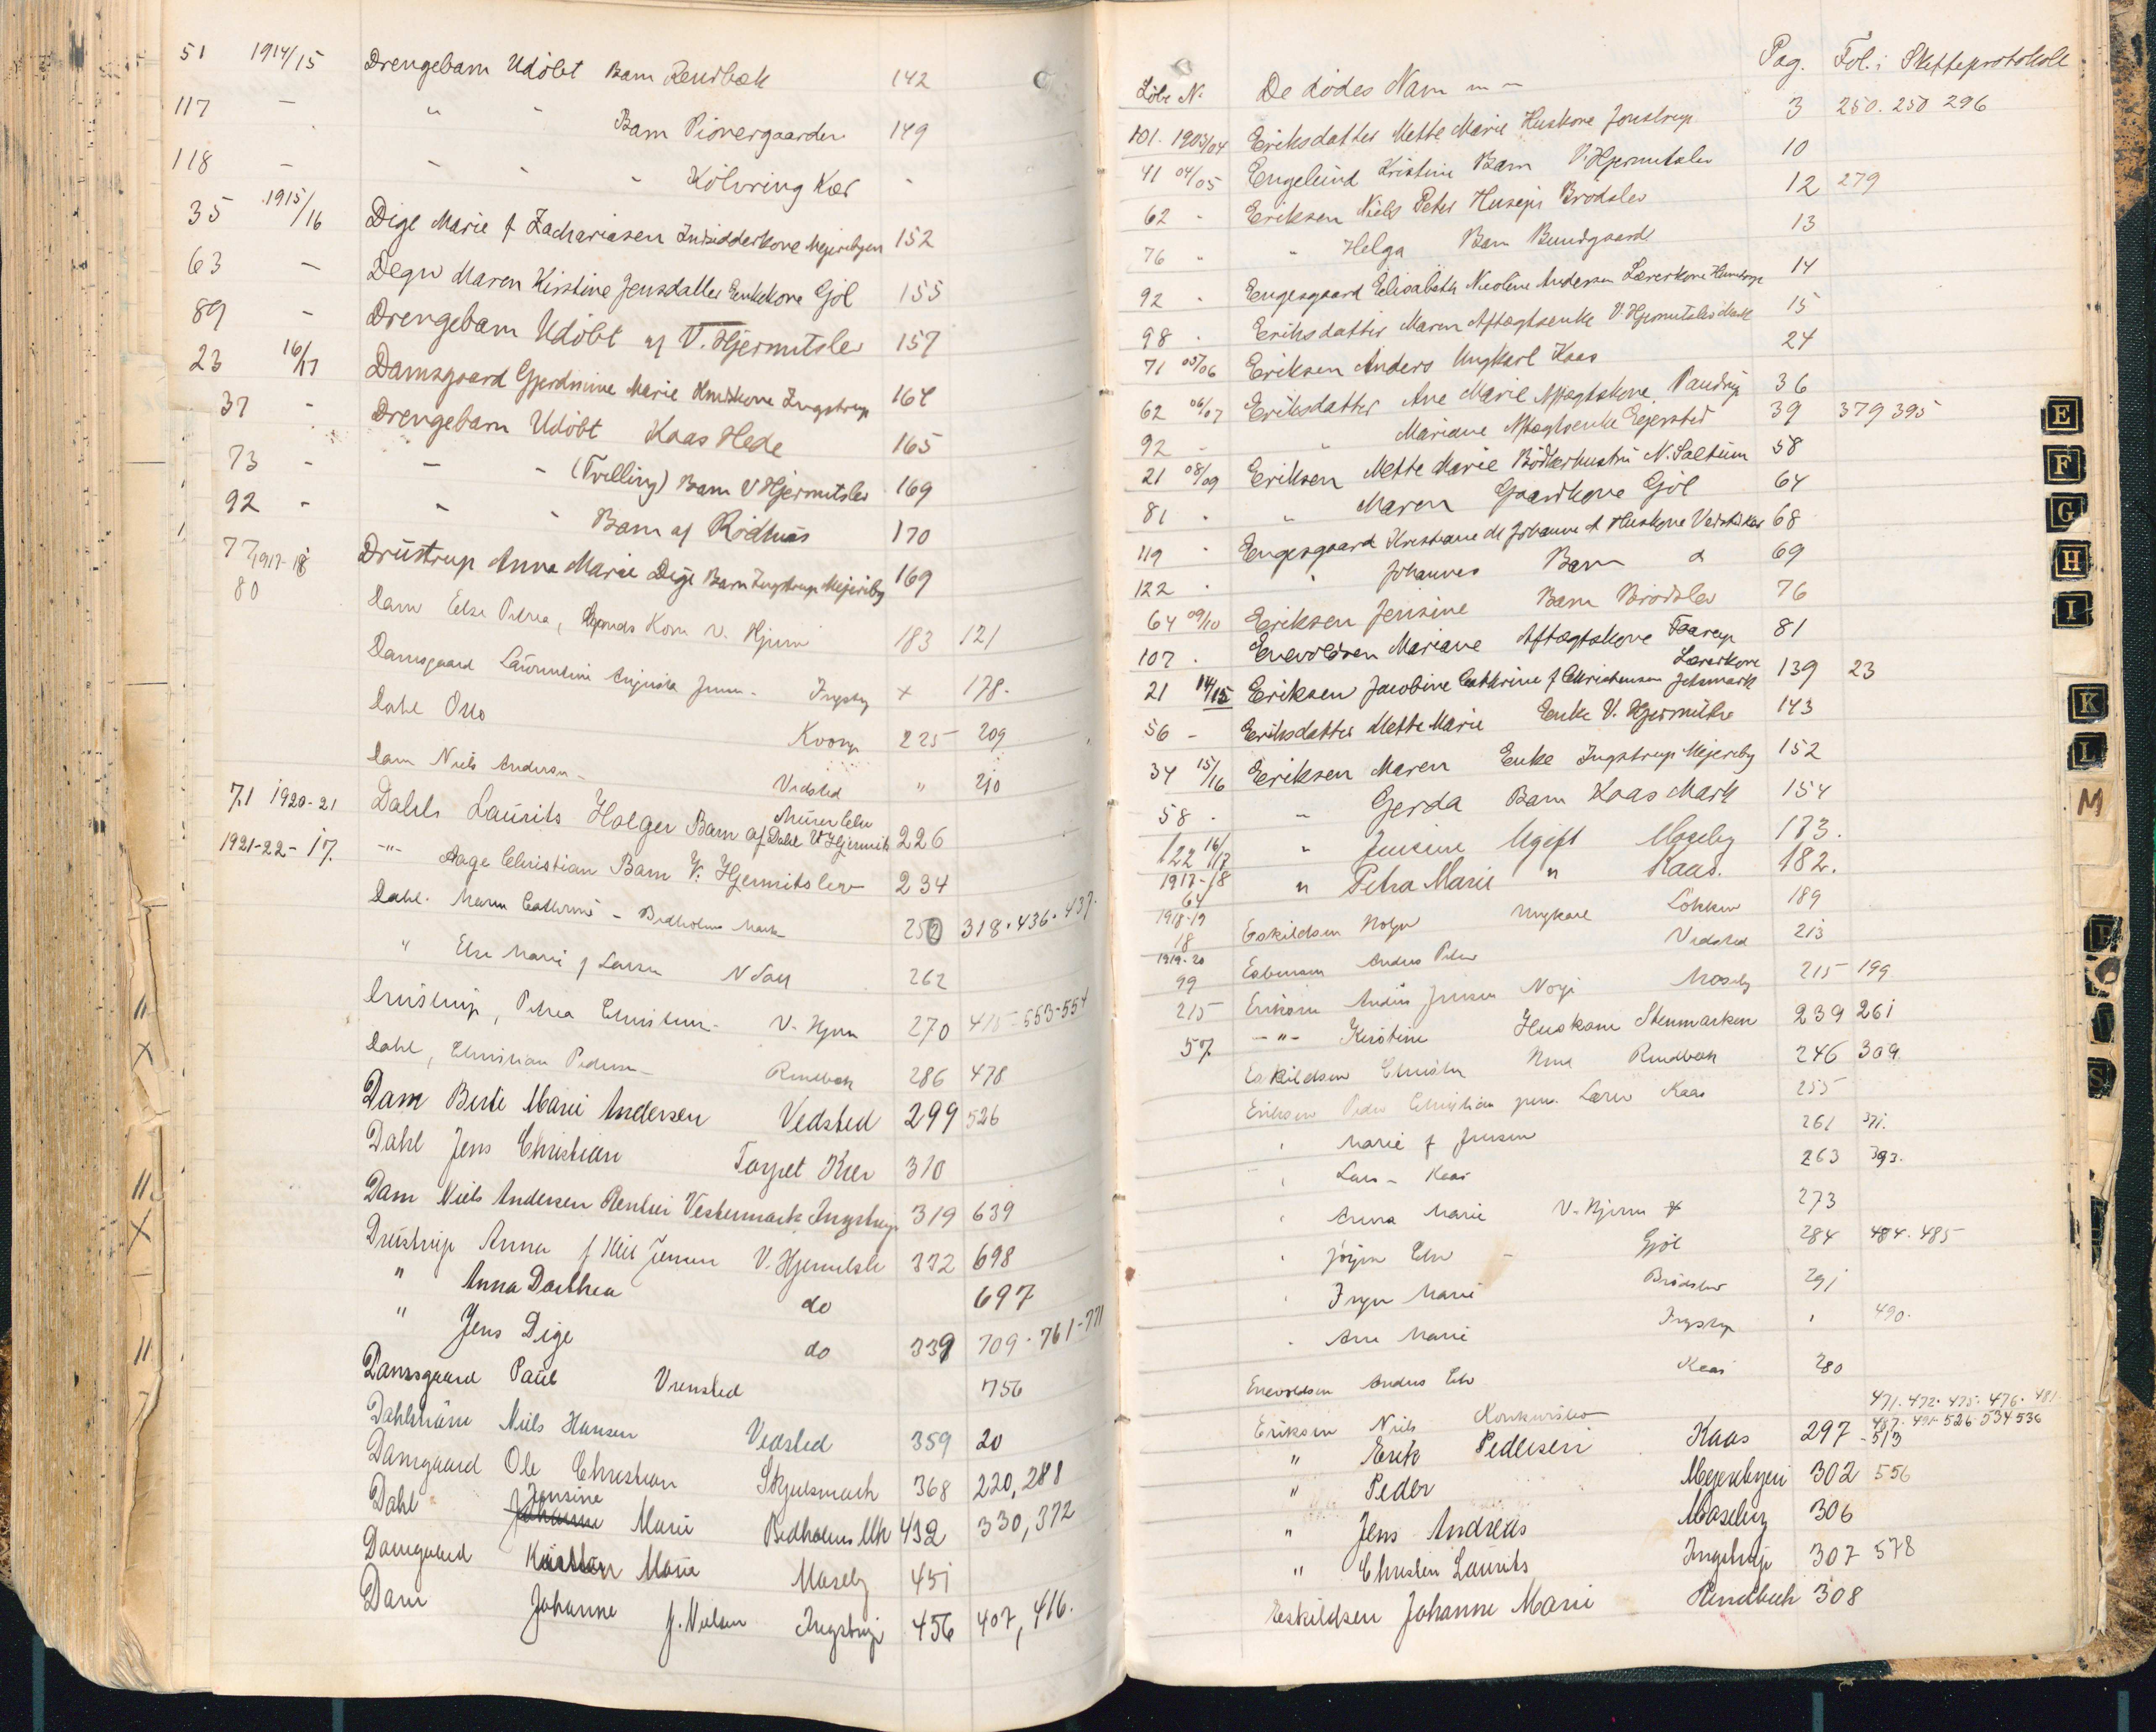 51 1914/15 Drengebarn Udöbt Barn Rendbæk 142
117 — " - Barn Pionergaarden 149
118 — - - - Kölvring Kær -
35 1915/16 Dige Marie f Zachariasen Indsidderkone Mejeribyen 152
63 — Degn Maren Kirstine Jensdatter Enkekone Göl 155
89 - Drengebarn Udöbt af V. Hjermitslev 157
23 16/17 Damsgaard Gjerdmine Marie Ingstrup 164
37 - Drengebarn Udöbt Kaas Hede 165
73 - - - (Tvilling) Barn V Hjermitslev 169
92 - - - Barn af Rödhus 170
77 1917-18 Drustrup Anna Marie Dige Barn Ingstrup Mejeriby 169
80
Dam Else Petrea, Kone V. Hjerm 183 121
Damsgaard Augusta Ingstrup x 178.
Dahl Otto 225 209
Dam Niels Andersen Vedsted " 210
71 1920-21 Dahls Laurits Holger Barn af Murer Dahl V Hjermits 226
1921-22 - 17. -"- Aage Christian Barn V. Hjermitslev 234
Dahl. Maren Cathrine - Bredholms Mark 252 318. 436. 437.
" Else Marie f Larsen 262
Drustrup, Petrea Christine V. Hjerm 270 553-554
Dahl, Christian Pedersen Rendbæk 286 478
Dam Birte Marie Andersen Vedsted 299 526
Dahl Jens Christian Torpet Kær 310
Dam Niels Andersen Rentier Vestermark Ingstrup 319 639
Drustrup Anna f Jensen V. Hjermitslev 332 698
" Anna Dorthea do 697
" Jens Dige do 339 709 - 761-771
Damsgaard Paul Vrensted 756
Niels Hansen Vedsted 359 20
Damgaard Ole Christian 368 220, 288
Dahl Johanne Jensine Marie Bredholms Mk 432 330, 372
Damgaard Marie Moseby 451
Dam Johanne f. Nielsen Ingstrup 456 407, 416.
Löbe N. De dödes Navn Pag. Fol. i Skifteprotokoll
101. 1903/04 Eriksdatter Mette Marie Huskone Jonstrup 3 250. 250 296
41 04/05 Engelund Kristine Barn V. Hjermitslev 10
62 - Eriksen Niels Peter Husejer Brodslev 12 279
76 " " Helga Barn Bundgaard 13
92 . Engesgaard Elisabeth Nicoline Andersen Lærerkone 14
98 . Eriksdatter Maren Aftægtsenke V. Hjermitslev Mark 15
71 05/06 Eriksen Anders Ungkarl Kaas 24
62 06/07 Eriksdatter Ane Marie Aftægtskone Pandrup 36
92 - " Mariane Aftægtsenke Ejersted 39 379 395
21 08/09 Eriksen Mette Marie Bödkerhustru N. Saltum 58
81 . " Maren Gaardkone Göl 64
119 " Engesgaard Kristiane M Johanne A Huskone Vedsted Kær 68
122 . " Johannes Barn 69
64 09/10 Eriksen Jensine Barn Brodslev 76
107 . Enevoldsen Mariane Aftægtskone Faarup 81
21 14/15 Eriksen Jacobine Cathrine f Christensen Lærerkone Jetsmark 139 23
56 - Eriksdatter Mette Marie Enke V. Hjermitslev 143
34 15/16 Eriksen Maren Enke Ingstrup Mejeriby 152
58 . " Gerda Barn Kaas Mark 154
122 16/17 " Jensine Ugift Moseby 173.
1917-18 64 " Petra Marie " Kaas. 182.
1918-19 18 Eskildsen Holger Ungkarl Løkken 189
1919-20 99 Esbensen Anders Peter Vedsted 213
215 Eriksen Andrs Jensen Moseby 215 199
57 -"- Kirstine Huskone Stenmarken 239 261
Eskildsen Christen Rendbæk 246 309
Eriksen Peder Christian Lærer Kaas 255
" Marie f Jensen 261 371.
" Lars - Kaas 263 393.
" Anna Marie V. Hjerm 273
" Jörgen Gjöl 284 484. 485
" Inger Marie Brødslev 291
" Ane Marie Ingstrup " 490.
Enevoldsen Anders Kaas 280
Eriksen Niels Konkursbo 471. 472. 475. 476. 481.
487. 491 526 534 536
" Erik Pedersen Kaas 297 - 513
" Peder Mejeribyen 302 556
" Jens Andreas Moseby 306
" Christen Laurits Ingstrup 307 578
Eskildsen Johanne Marie Rendbæk 308
E
F
G
H
I
K
L
M
P
S